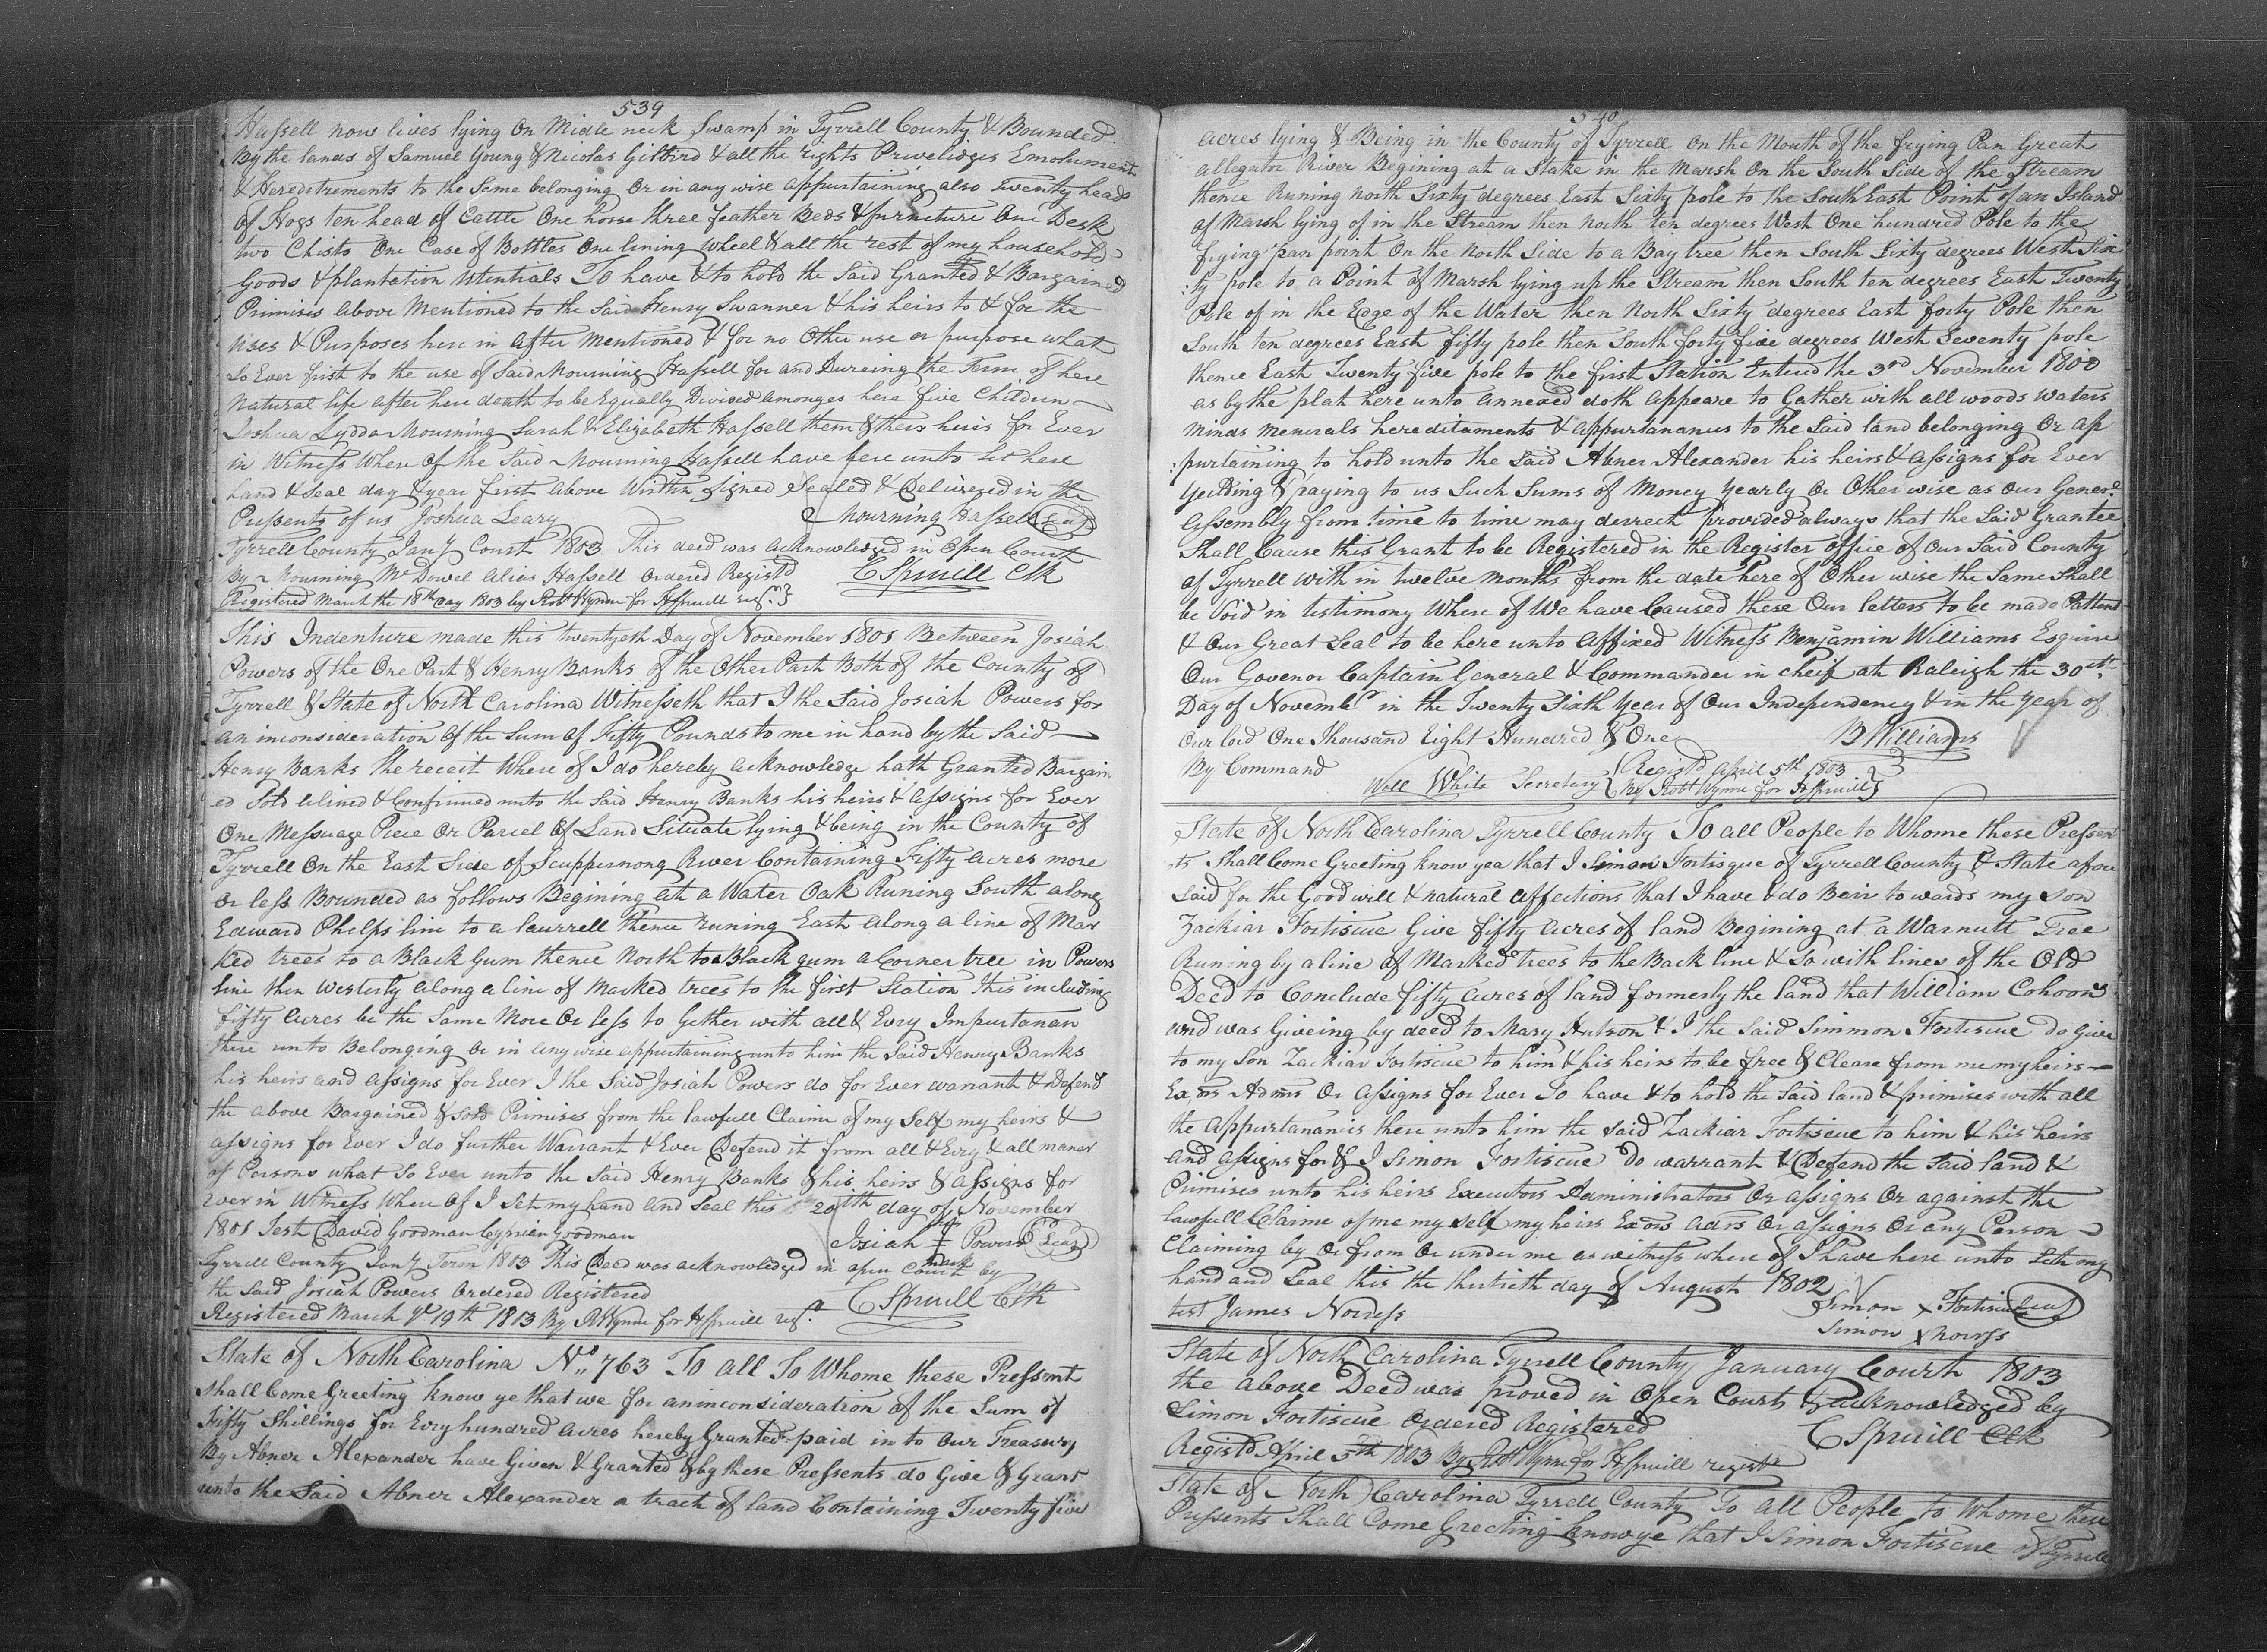 539
Hassell now lives lying On Midle neck Swamp in Tyrrell County & Bounded
By the lands of Samuel Young & Nicolas Gilbird & all the rights Privelidges Emoluments
& Heredetrements to the Same belonging Or in any wise appurtaining also Twenty heads
of Hogs ten head of Cattle One horse three feather Beds & furneture One Desk
two Chists One Case of Bottles One lining wheel & all the rest of my household
Goods & plantation Utentials To have & to hold the Said Granted & Bargained
Primises above Mentioned to the Said Henry Swanner & his heirs to & for the
Uses & Purposes here in after mentioned & for no Other use or purpose what
So Ever first to the use of Said Mourning Hassell for and Dureing the Term of here
Natural life after here death to be Equally Divided amonges here five Children
Joshua Lydda Mourning Sarah & Elizabeth Hassell them & their heirs for Ever
in Witness Where Of the Said Mourning Hassell have here unto Set here
hand & Seal day & year first above Writtn Signed Sealed & Delivered in the
Pressents of us Joshua Leary Mourning Hassell Seal
Tyrrell County Jany Court 1803 This deed was acknowledged in Open Court
By Mourning McDowel alias Hassell Ordered Registd C Spruill Clk
Registered March the 18th Day 1803 by Robt Wynne for H Spruill reg.
This Indenture made this twentyeth Day of November 1801 Between Josiah
Powers of the One Part & Henry Banks of the Other Part Both of the County of
Tyrrell & State of North Carolina Witnesseth that I the Said Josiah Powers for
an inconsideration Of the Sum of Fifty Pounds to me in hand by the Said
Henry Banks the receit Where of I do hereby acknowledge hath Granted Bargain
ed Sold alined & Confirmed unto the Said Henry Banks his heirs & assigns for Ever
One Messuage Piece Or Parcel Of Land Situate lying & being in the County of
Tyrrell On the East Side of Scuppernong River Containing Fifty acres more
or less Bounded as follows Begining at a Water Oak Runing South along
Edward Phelps line to a laurrell thence runing East along a line of Mar
ked trees to a Black Gum thence North to a Black gum a Corner tree in Powers
line then Westerly along a line of Marked trees to the first Station this including
fifty acres be the Same More Or less to Gether with all & Evry Impurtanan
there unto Belonging Or in any wise appurtaining unto him the Said Henry Banks
his heirs and assigns for Ever I the Said Josiah Powers do for Ever warrant & Defend
the above Bargained & Sold Primises from the lawfull Claime of my Self my heirs &
assigns for Ever I do further Warrant & Ever Defend it from all & Evry & all maner
of Persons what So Ever unto the Said Henry Banks & his heirs & assigns for
Ever in Witness Where Of I Set my hand and Seal this 20th day of November
1801 Test David Goodman Cyprian Goodman Josiah his mark Powers Seal
Tyrrell County Jany Term 1803 This Deed was acknowledged in open Court by
the Said Josiah Powers Ordered Registered C Spruill Clk
Registered March ye 19th 1803 By R Wynne for H Spruill reg.
State of North Carolina No. 763 To all To Whome these Pressent
Shall Come Greeting know ye that we for an inconsideration of the Sum of
Fifty Shillings for Evry hundred acres hereby Granted paid in to Our Treasury
By Abner Alexander have Given & Granted & by these Pressents do Give & Grant
unto the Said Abner Alexander a tract of land Containing Twenty five
540
acres lying & Being in the County of Tyrrell On the Mouth of the frying Pan Great
allegator River Begining at a Stake in the Marsh On the South Side of the Stream
thence Runing North Sixty degrees East Sixty pole to the South East Point of an Island
of Marsh lying of in the Stream then North ten degrees West One hundred Pole to the
frying pan point On the North Side to a Bay tree then South Sixty degrees West Six
ty pole to a Point of Marsh lying up the Stream then South ten degrees East Twenty
Pole of in the Edge of the Water then North Sixty degrees East forty Pole then
South ten degrees East fifty pole then South forty five degrees West Seventy pole
thence East Twenty five pole to the first Station Entered the 3rd November 1800
as by the plat here unto annexed doth appeare to Gather with all woods waters
minds menerals hereditaments & appurtananus to the Said land belonging Or ap
purtaining to hold unto the Said Abner Alexander his heirs & assigns for Ever
Yeilding & Paying to us Such Sums of Money Yearly Or Other wise as Our General
Assembly from time to time may derrect provided always that the Said Grantee
Shall Cause this Grant to be Registered in the Register office of Our Said County
of Tyrrell with in twelve months from the date here of Other wise the Same Shall
be Void in testimony Where of We have Caused these Our letters to be made Pattent
& Our Great Seal to be here unto affixed Witness Benjamin Williams Esquire
Our Govenor Captain General & Commander in cheif at Raleigh the 30th
Day of Novembr in the Twenty Sixth Year of Our Independency & in the Year of
Our lord One Thousand Eight Hundred & One B Williams
By Command Registd April 5th 1803
Will White Secretary By Robt Wynne for H Spruill
State of North Carolina Tyrrell County To all People to Whome these Pressen
ts Shall Come Greeting know yea that I Simon Fortisque of Tyrrell County & State afore
Said for the Good will & natural affections that I have & do Bair to wards my Son
Zackiar Fortiscue Give fifty acres of land Begining at a Warnutt Tree
Runing by a line of Marked trees to the Back line & So with lines of the Old
Deed to Conclude fifty acres of land formerly the land that William Cohoons
and was Giveing by deed to Mary Hutson & I the Said Simmon Fortiscue do give
to my Son Zackiar Fortiscue to him & his heirs to be free & Cleare from me my heirs
Exors Admrs Or assigns for Ever To have & to hold the Said land & primises with all
the appurtananus there unto him the Said Zackiar Fortiscue to him & his heirs
and assigns for & I Simon Fortiscue Do warrant & Defend the Said land &
Primises unto his heirs Executors Administrators Or assigns Or against the
lawfull Claime of me my self my heirs Exors Adrs Or assigns Or any Person
Claiming by Or from Or under me as witness where of I have here unto Set my
hand and Seal this the thirtieth day of August 1802
test James Norress Simon x Fortiscue Seal
Simon x Norress
State of North Carolina Tyrrell County January Court 1803
the above Deed was proved in Open Court & acknowledged by
Simon Fortiscue Ordered Registered C Spruill Clk
Registd April 5th 1803 By Robt Wynne for H Spruill registr
State of North Carolina Tyrrell County To all People to Whome these
Pressents Shall Come Greeting know ye that I Simon Fortiscue of Tyrrell